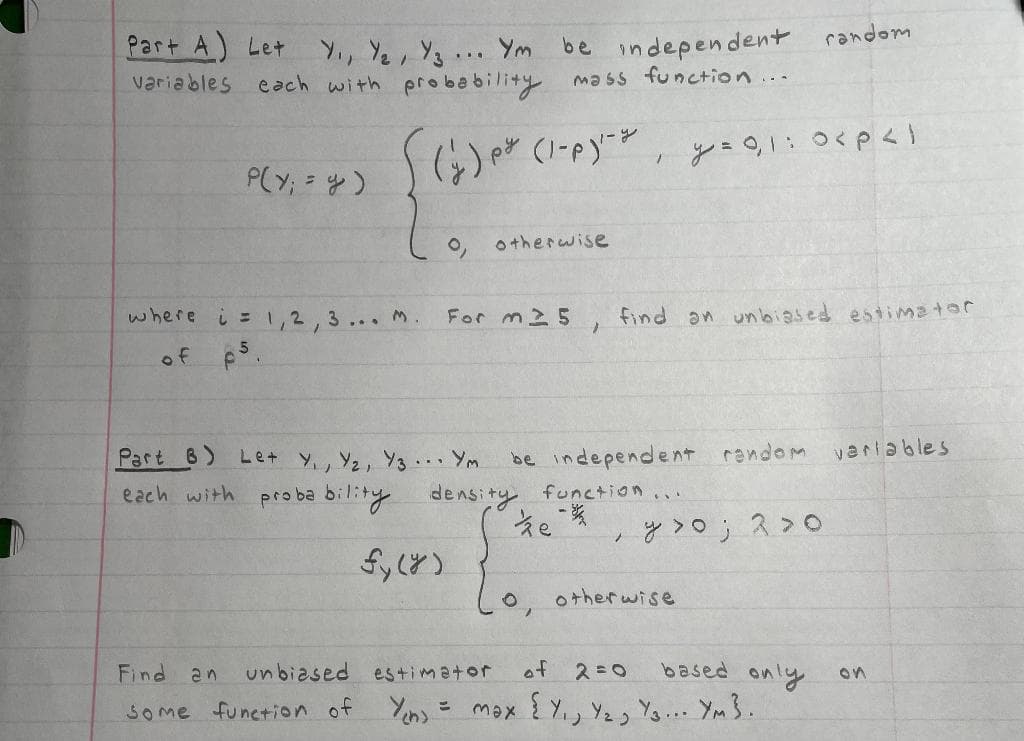 Part A) Let Y₁, Y₂, Y₃ ... Ym be independent random
variables each with probability mass function ...
P(Yᵢ = y) { (1 y) p^y (1-p)^1-y , y = 0,1 : 0<p<1
0, otherwise
where i = 1,2,3 ... m. For m ≥ 5, find an unbiased estimator
of p⁵.
Part B) Let Y₁, Y₂, Y₃ ... Ym be independent random variables
each with probability density function ...
f_y(y) { 1/λ e^-y/λ , y >0 ; λ >0
0, otherwise
Find an unbiased estimator of λ=0 based only on
some function of Y(n) = max {Y₁, Y₂, Y₃... Ym}.